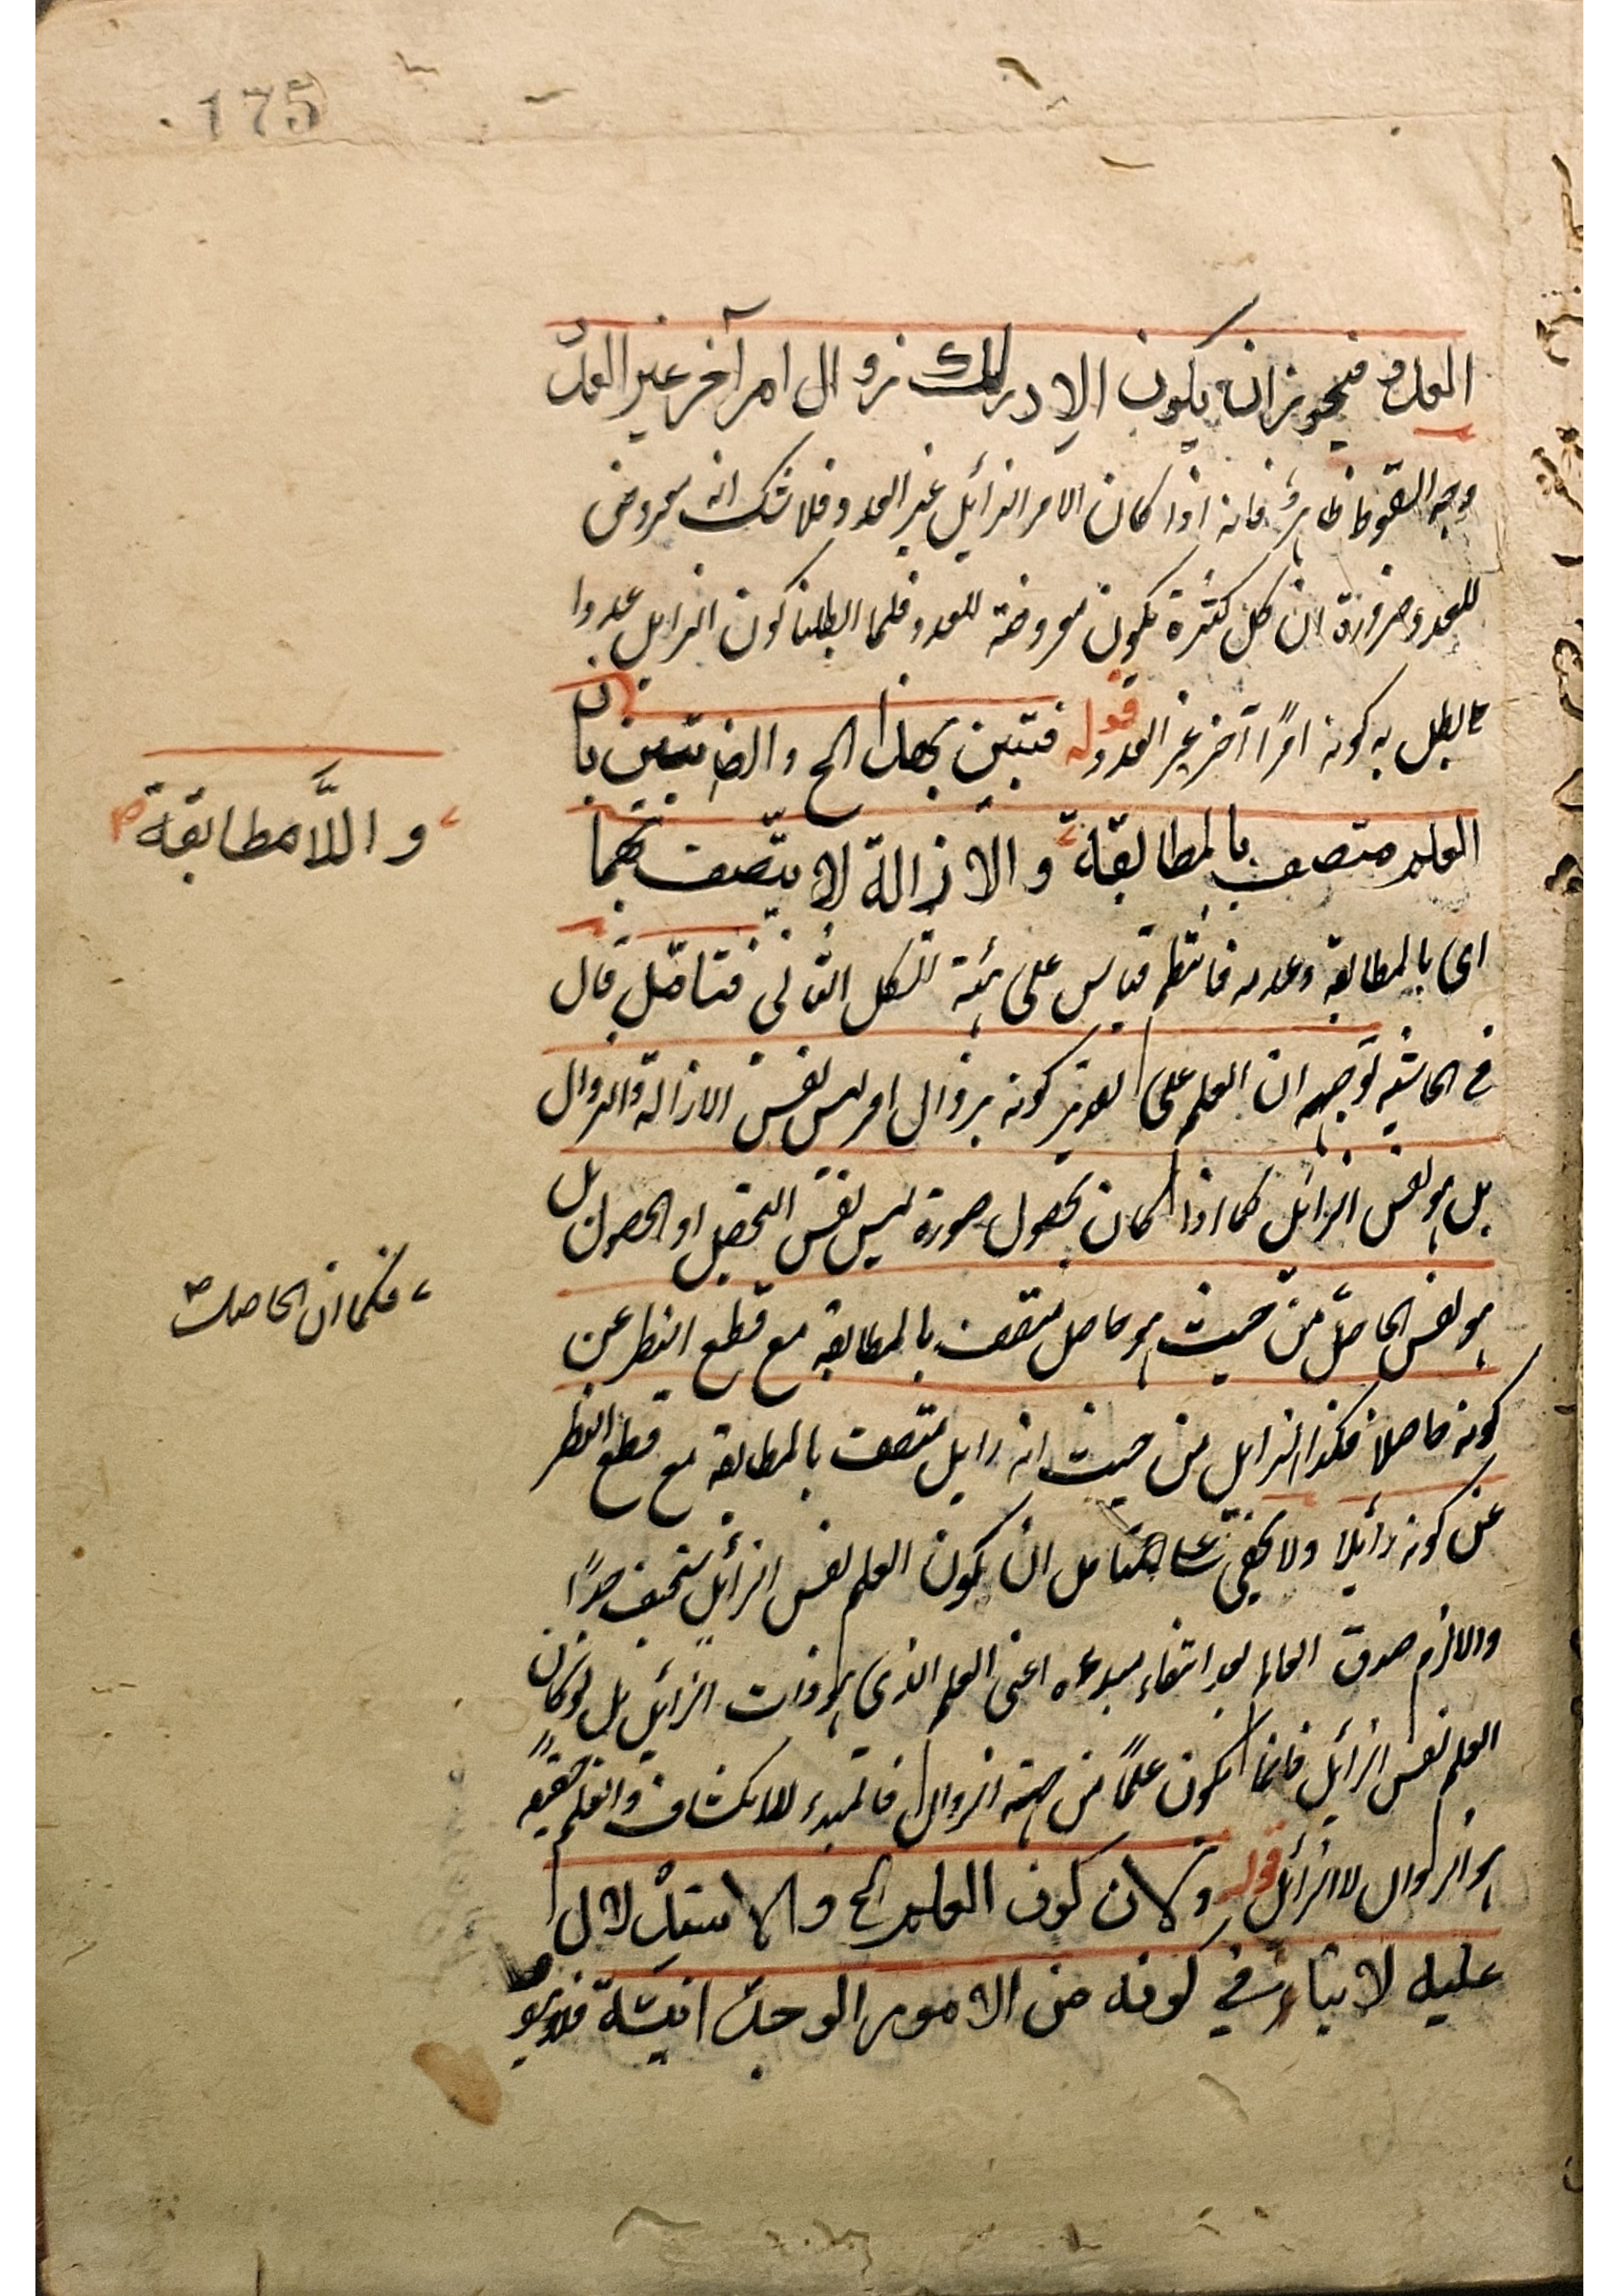 175
العدد فيجوز ان يكون الادراك زوال امر آخر غير العدد
وجه السقوط ظاهر فانه اذا كان الامر الزائل غير العدد فلا شك انه معروض
للعدد ضرورة ان كل كثرة يكون معروضة للعدد فلما ابطلنا كون الزايل عددا
بطل به كونه امرًا آخر غير العدد قوله فتبين بهذا الخ وايضا تبين بان
العلم متصف بالمطابقة والازالة لا يتصف بهما
واللَّامطابقة
اى بالمطابقة وعدمه فانتظم قياس على هيئة الشكل الثانى فتامّل قال
فى الحاشية توجيهه ان العلم على تقدير كونه بزوال امر ليس نفس الازالة والزوال
بل هو نفس الزائل كما اذا كان بحصول صورة ليس نفس التحصيل او الحصول بل
هو نفس الحاصل من حيث هو حاصل متصف بالمطابقة مع قطع النظر عن
فكما ان الحاصل
كونه حاصلا فكذا الزايل من حيث انه زايل متصف بالمطابقة مع قطع النظر
عن كونه زائلا ولا يخفى على المتامل ان يكون العلم نفس الزائل سخيف جدًا
والا لزم صدق العالم بعد انتفاء مبدءه اعنى العلم الذى هو ذات الزائل بل لو كان
العلم نفس الزائل فانما يكون علمًا من جهة الزوال فالمبدء للانكشاف والعلم حقيقة
هو الزوال لا الزائل قوله ولان كون العلم الخ والاستدلال
عليه لا ينافى كونه من الامور الوجدانية